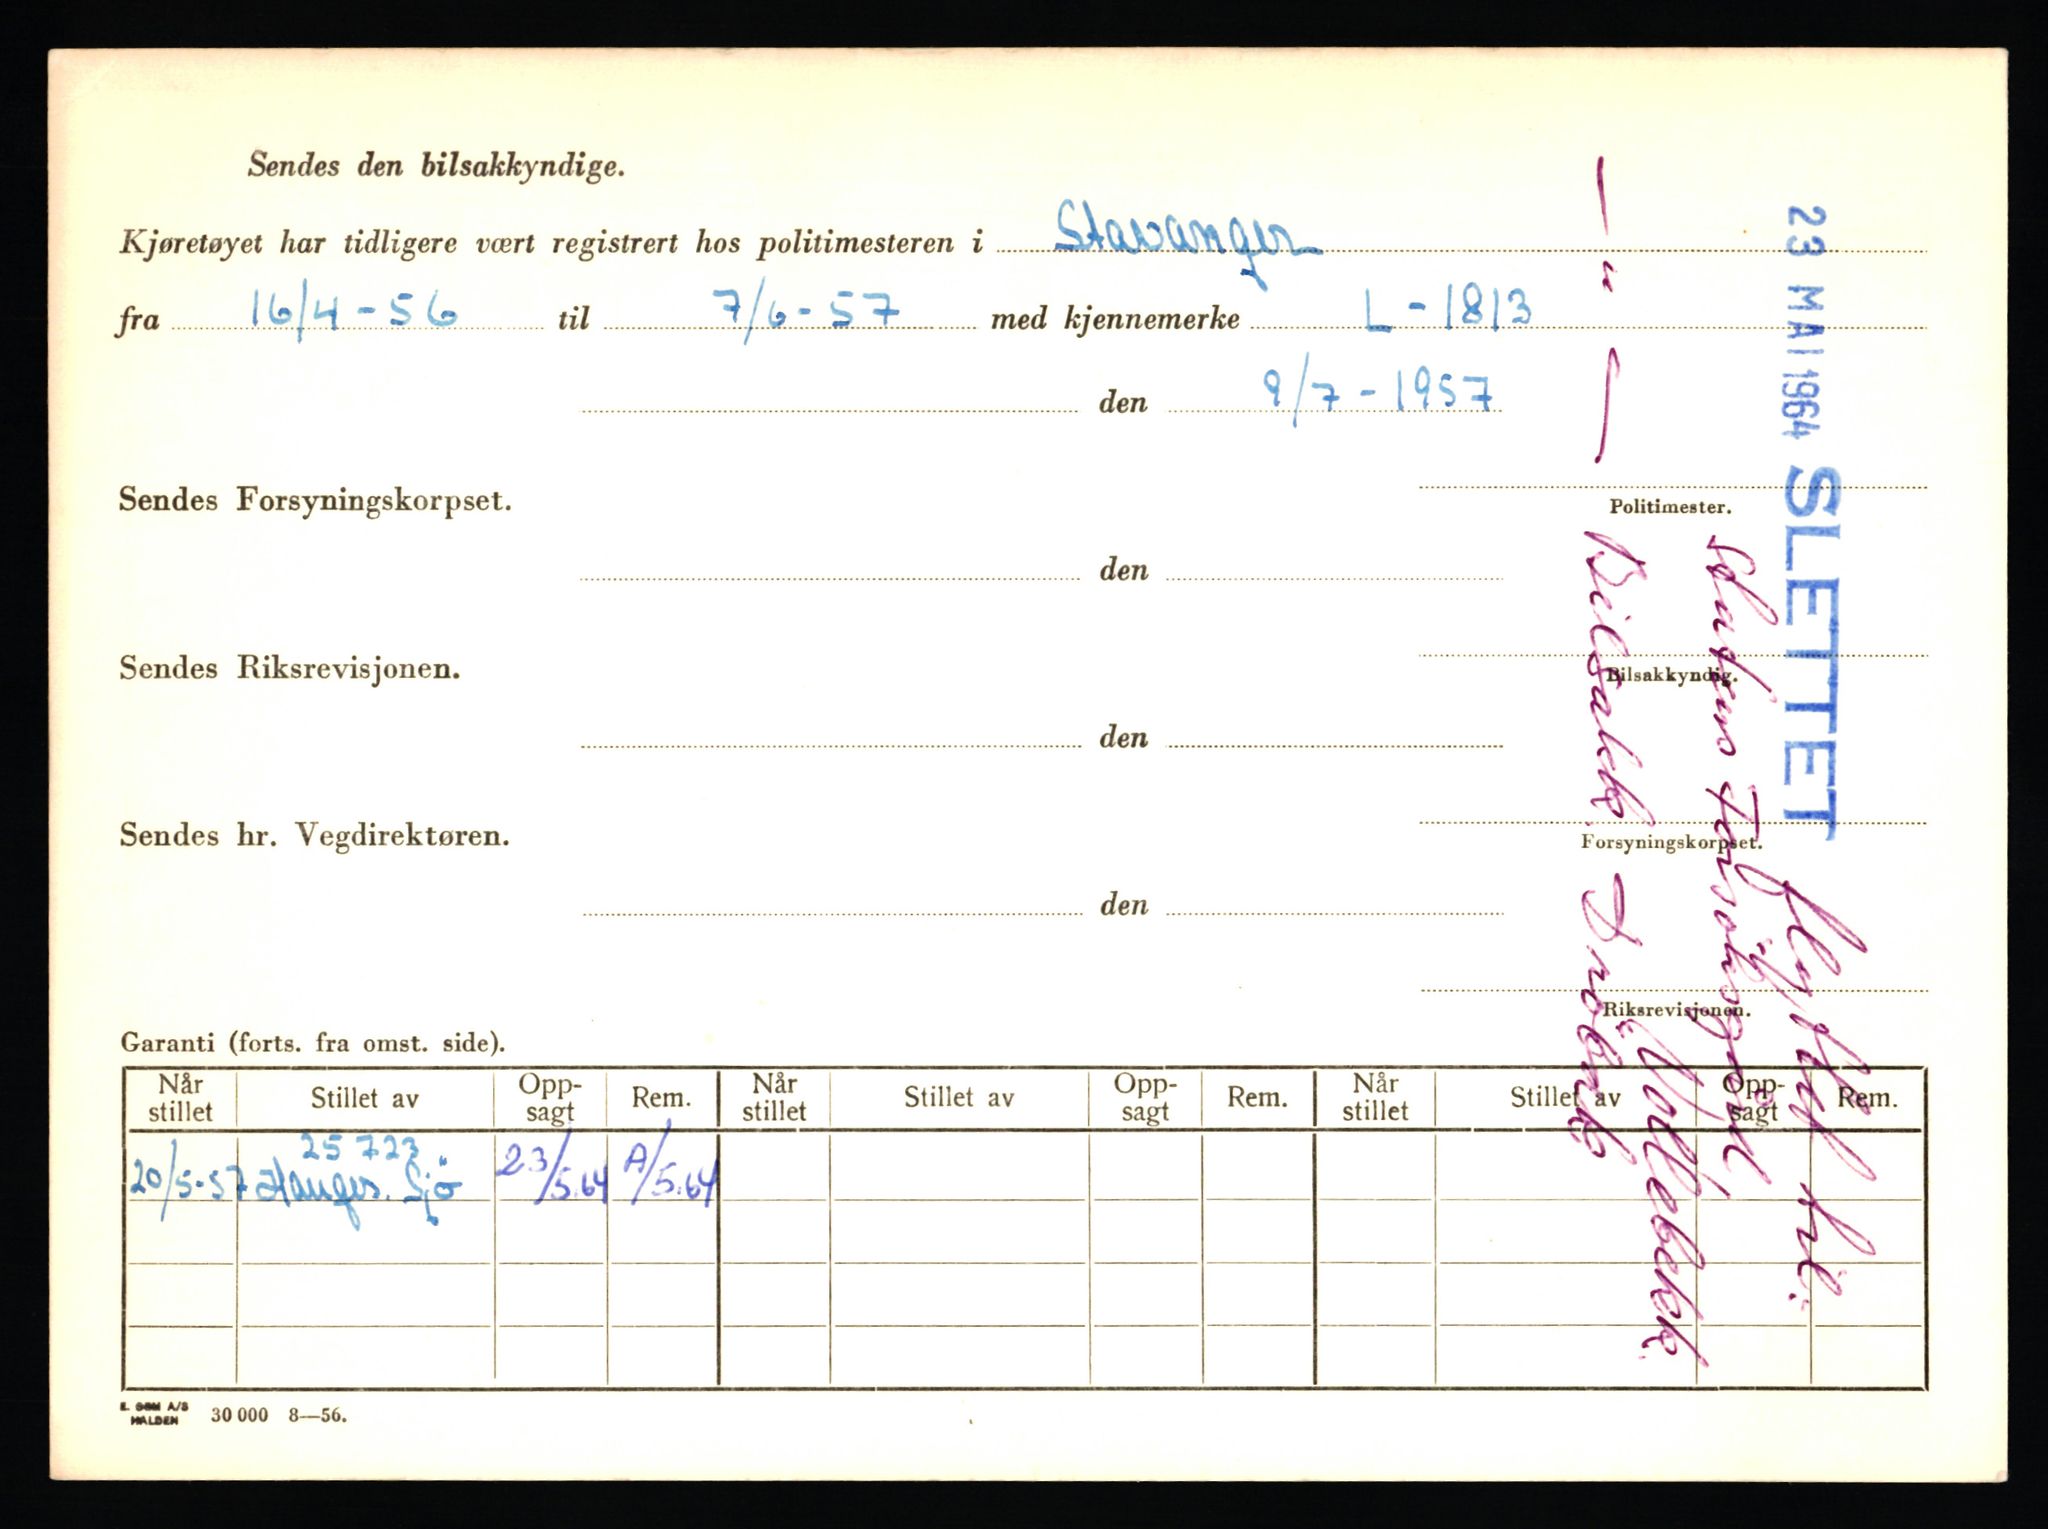 Sendes den bilsakkyndige.
Kjøretøyet har tidligere vært registrert hos politimesteren i Stavanger
fra 16/4-56 til 7/6-57 med kjennemerke L-1813
den 9/7-1957
Sendes Forsyningskorpset.
Politimester.
den
Sendes Riksrevisjonen.
Bilsakkyndig.
den
Sendes hr. Vegdirektøren.
Forsyningskorpset.
den
Riksrevisjonen.
23 MAI 1964 SLETTET
Flyttet til:
Statens Forsöksgård,
Vollebekk.
Bilsakk. Dröbak
— " —
Garanti (forts. fra omst. side).
Når stillet Stillet av Opp-sagt Rem. Når stillet Stillet av Opp-sagt Rem. Når stillet Stillet av Opp-sagt Rem.
25723
20/5-57 Hauges. Sjö 23/5.64 A/5.64
E. SEM A/S
HALDEN 30 000 8—56.